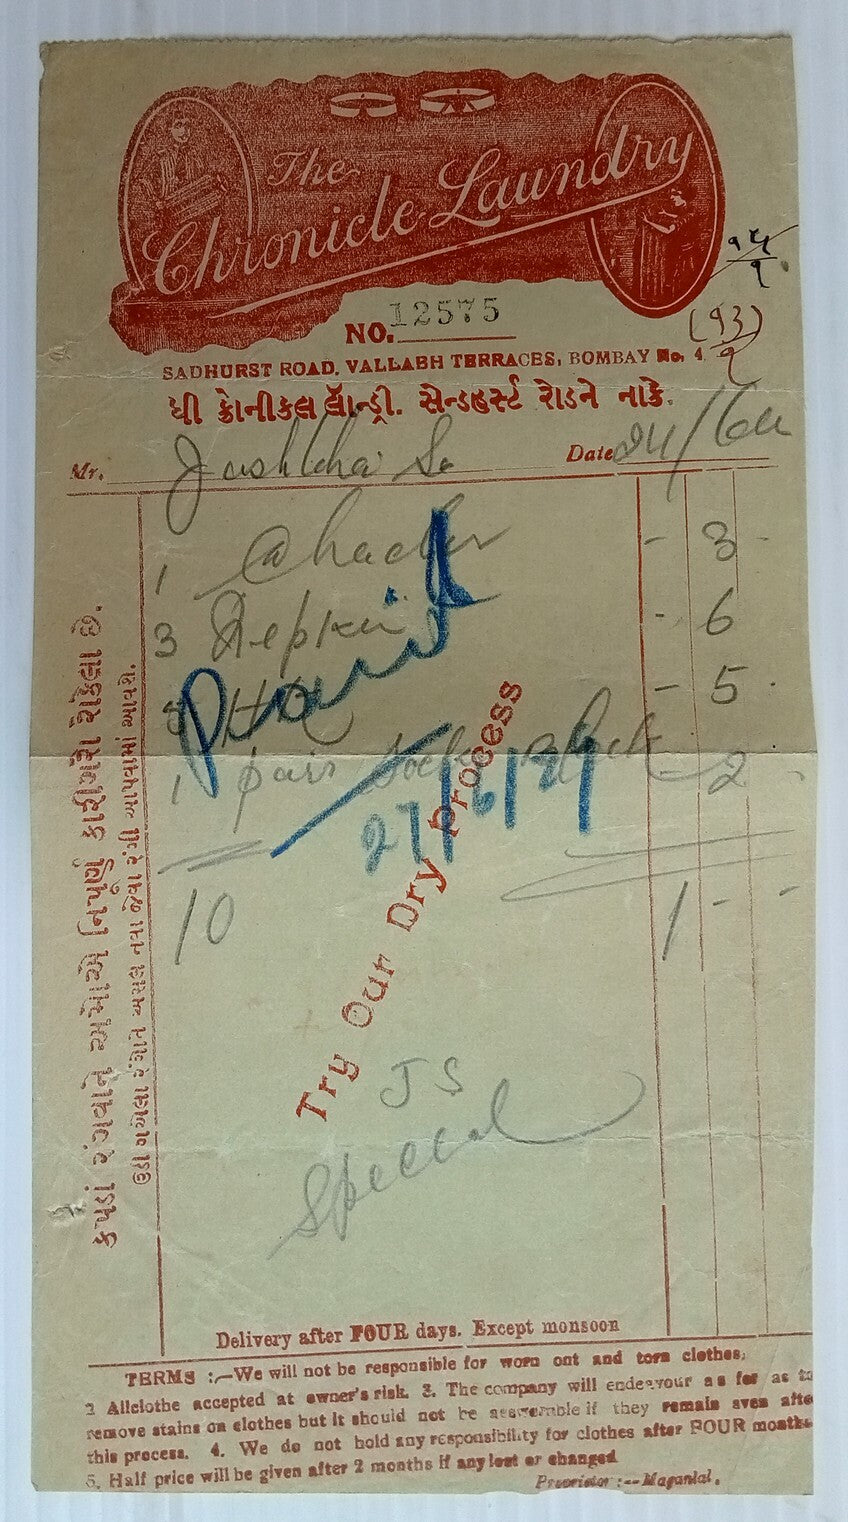 The
Chronicle Laundry
NO. 12575
SADHURST ROAD, VALLABH TERRACES, BOMBAY No. 4
ધી ક્રોનીકલ લૅાન્ડ્રી. સેન્ડહર્સ્ટ રોડને નાકે.
(૧૩)
૧
Mr. Date 24/6
1 Chadar - 3 -
3 Nepkin - 6
5 - 5 -
1 pair Socks Black - 2 -
10 1 - -
Paid
27/6/29
Try Our Dry process
JS
Special
કપડાં રંગવાને અમોએ નિપૂણ કારીગરો રોકેલા છે.
ઉડી ગએલા રંગોને અસલ નવા જેવા રંગી આપવામાં આવશે.
Delivery after FOUR days. Except monsoon
TERMS :—We will not be responsible for worn out and torn clothes;
2 Allclothe accepted at owner's risk. 3. The company will endeavour as far as to
remove stains on clothes but it should not be answerable if they remain even afte
this process. 4. We do not hold any responsibility for clothes after FOUR months.
5. Half price will be given after 2 months if any lost or changed
Proprietor :—Maganlal.